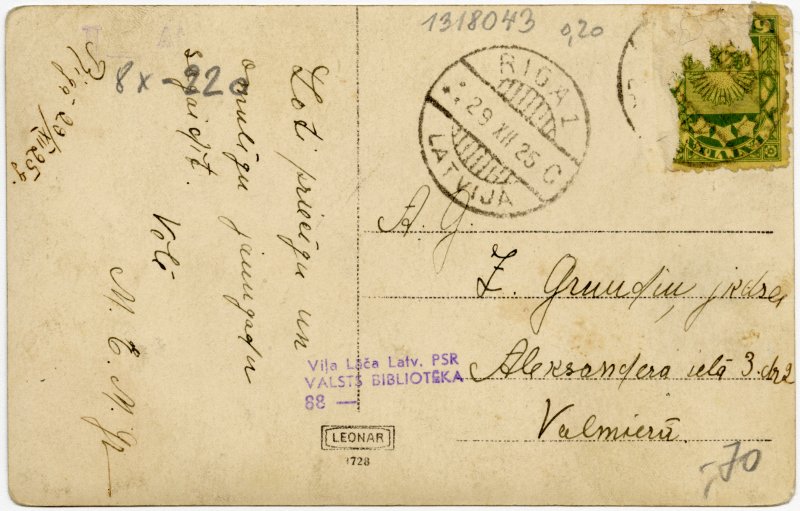 1318043 0,20
8x -22 0
Rīgā - 29/XII 25 g.
Ļoti priecīgu un
omulīgu jaungadu
sagaidīt.
Vēlē
RIGA 1
29 XII 25 C
LATVIJA
LATVIJA
5
A. G.
Z. Grundiņ jkdze,
Aleksandera ielā 3. dz 2
Valmierā.
Viļa Lāča Latv. PSR
VALSTS BIBLIOTĒKA
88 —
LEONAR
1728
-,70